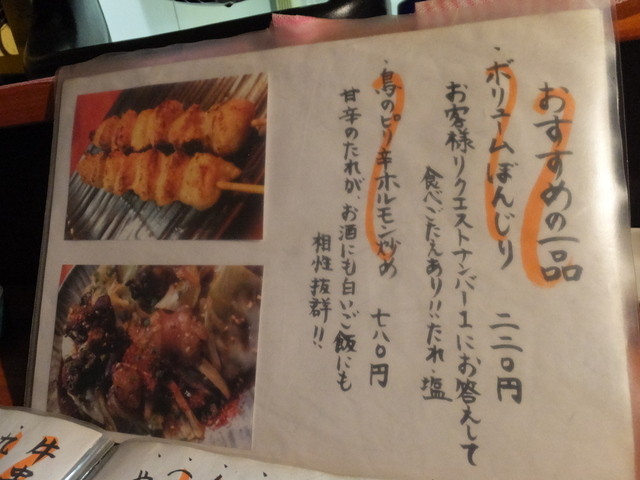 おすすめの一品
・ボリュームぼんじり 二二〇円
お客様リクエストナンバー1にお答えして
食べごたえあり!!たれ・塩
・鳥のピリ辛ホルモン炒め 七八〇円
甘辛のたれが、お酒にも白いご飯にも
相性抜群!!